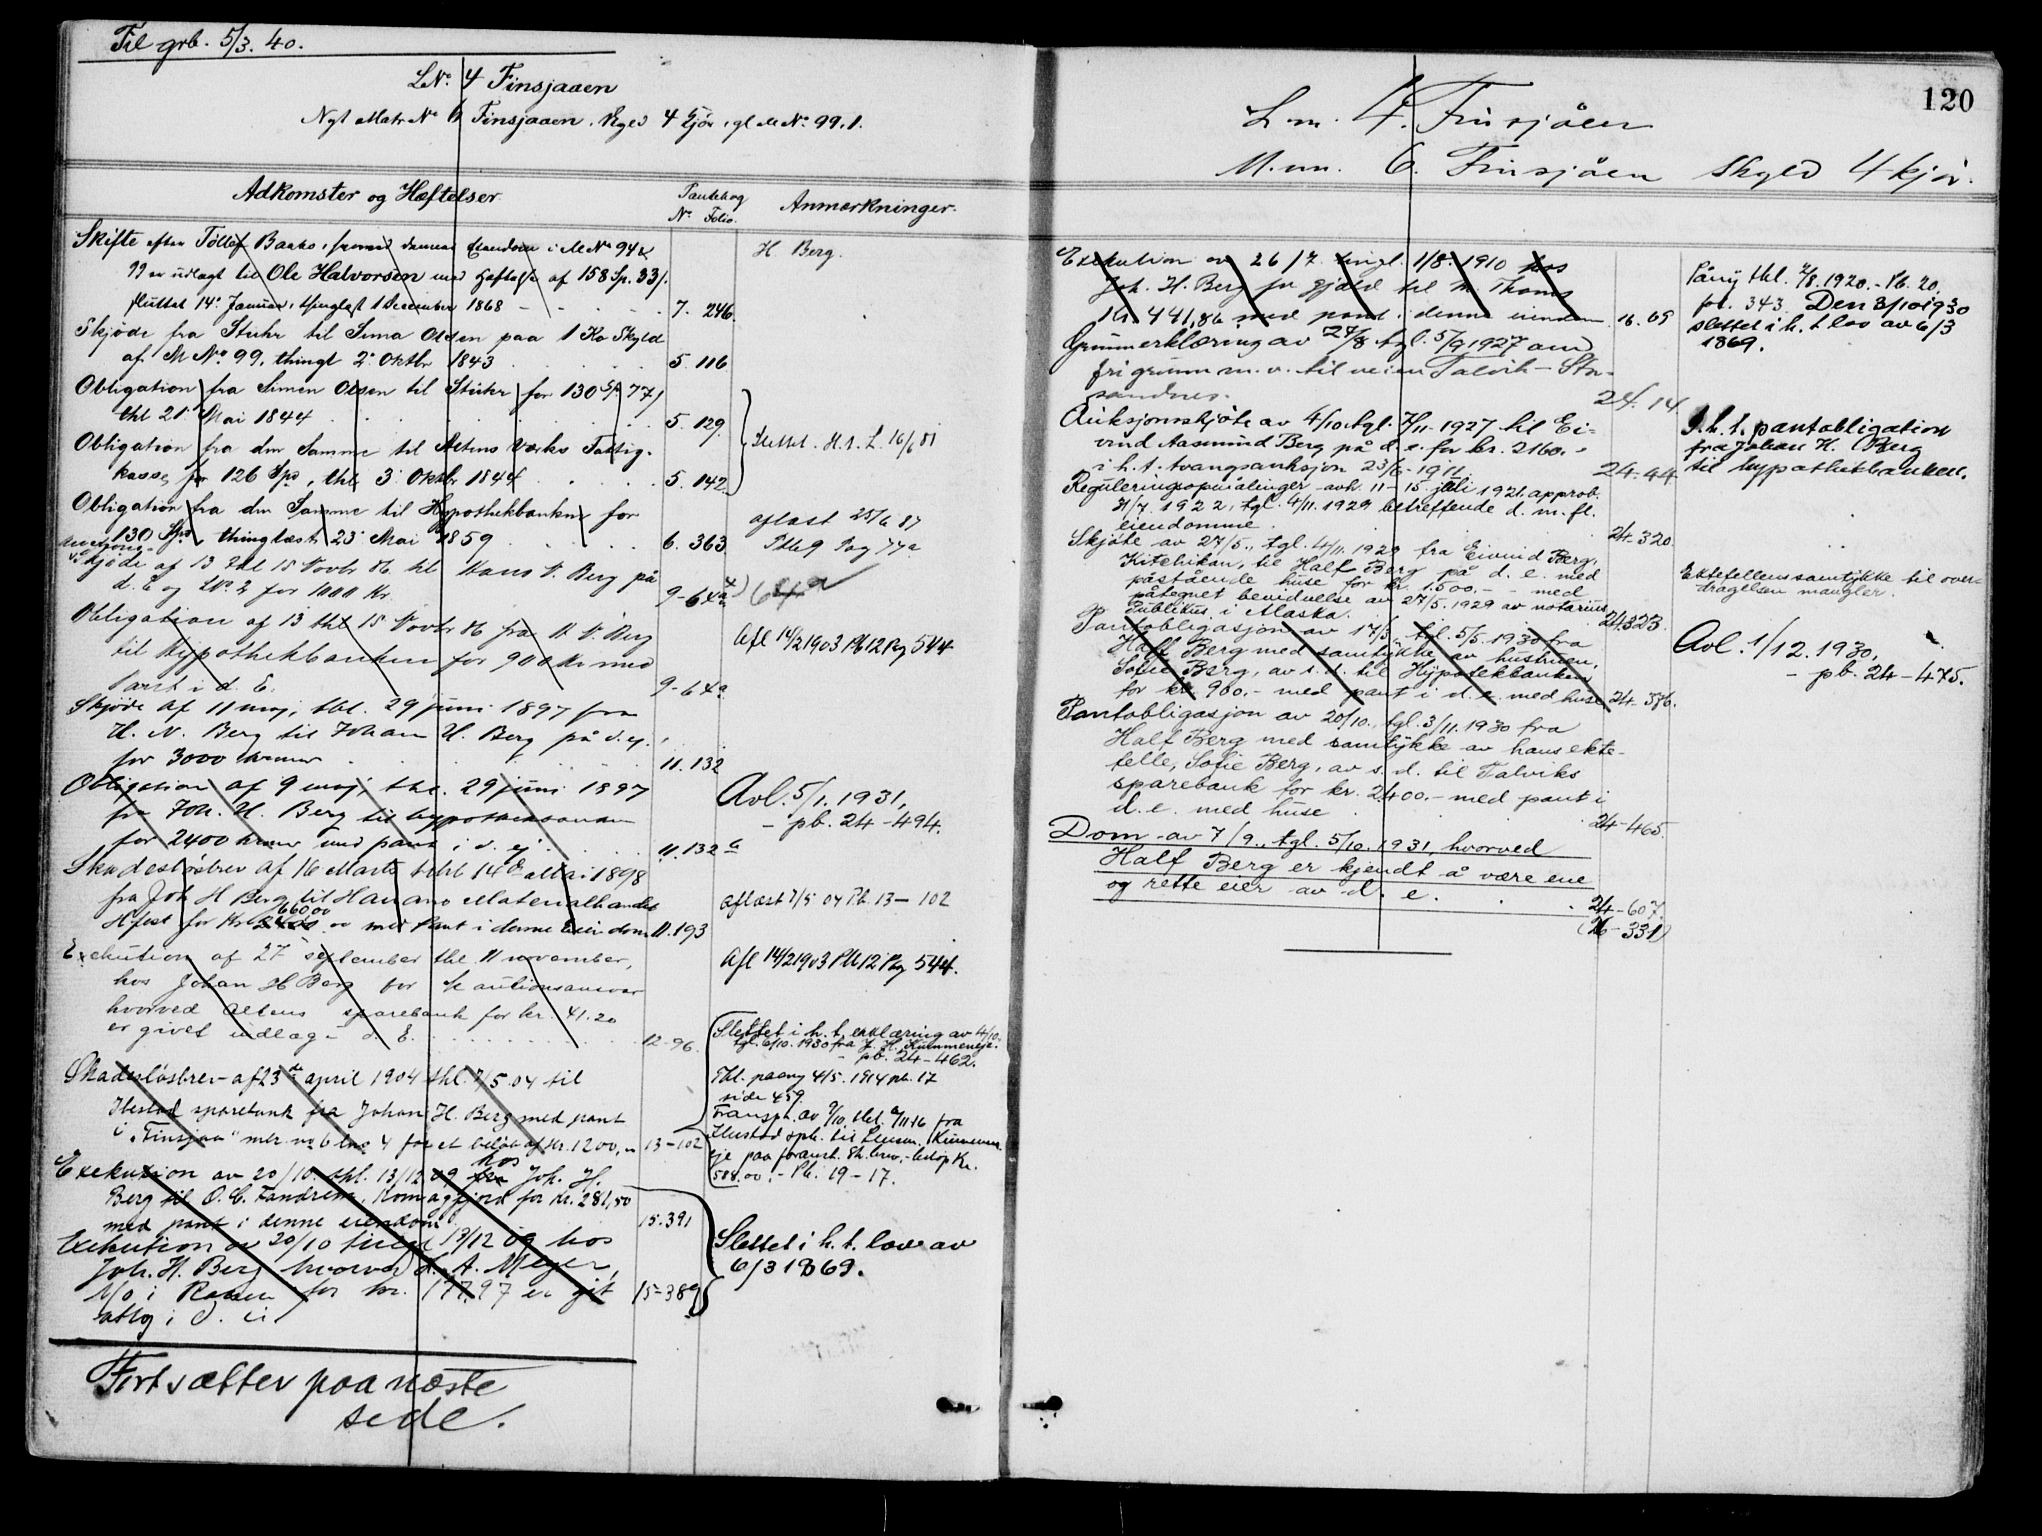 Til grb. 5/3. 40.
LNo. 4 Finsjaaen
Nyt Matr No 6 Finsjaaen. Skyld 4 Kjör, gl M No. 99,1.
Adkomster og Hæftelser
Pantebog
No. Folio.
Anmærkninger.
Skifte efter Töllef Baako, hvorved denne Eiendom i M No 94 &
99 er udlagt til Ole Halvorsen med Heftelse af 158 Sp. 33/.
sluttet 14. Januar, thinglæst 1 December 1868
7. 246.
H. Berg.
Skjöde fra Stuhr til Sima Olsen paa 1 Ko Skyld
af M No. 99, thingl 2. Oktbr 1843
5. 116
Obligation fra Simen Olsen til Stuhr for 130 Sp 77/
thl 21. Mai 1844
5. 129.
Obligation fra den Samme til Altens Værks Fattig-
kasse, for 126 Spd, thl 3. Oktbr 1844
5. 142.
Slettet. H. t. L. 16/6 81
Obligation fra den Samme til Hypothekbanken for
130 Spd thinglæst 23. Mai 1859
6. 363
aflæst 25/6 87
Ptb 9 Pag 77a
Auctions-
skjöde af 13 thl 15 Novbr 86 til Hans N. Berg på
d. E og LNo. 2 for 1000 Kr
9-64a
64a
Obligation af 13 thl 15 Novbr 86 fra H N. Berg
til Hypothekbanken for 900 Kr med
Pant i d. E.
9-64a
Afl 14/2 1903 Pb 12 Pag 544
Skjöde af 11 maj, thl. 29 juni 1897 fra
H. N. Berg til Johan H. Berg på d. ej.
for 3000 kroner
11. 132
Obligation af 9 maj, thl. 29 juni 1897
fra Joh. H. Berg til hypothekbanken
for 2400 kroner med pant i d. ej.
11. 132 a
Avl. 5/1. 1931,
- pb. 24-494.
Skadeslösbrev af 16 Marts thl 14de Mai 1898
fra Joh H Berg til Havanas Materialhandel
Hfest for Kr 660,00 2400,00 med Pant i denne Eiendom
11. 193
aflæst 7/5 04 Pb. 13-102
Exekution af 27 september thl 11 november,
hos Johan H Berg for Kautionsansvar
hvorved Altens sparebank for kr. 41.20
er givet udlæg i d. E.
12-96.
Afl 14/2 1903 Pb 12 Pag 544.
Skadeslösbrev af 23de april 1904 thl. 7/5 04 til
Ibestad sparebank fra Johan H. Berg med pant
i "Finsjaa" mtr. no 6 lno 4 for et belöb af Kr. 1200,00
13-102
Slettet i h. t. erklæring av 4/10.
tgl. 6/10. 1930 fra J. H. Kummeneje.
- pb. 24-462.
Thl. paany 4/5. 1914 pb. 17
side 459.
Transpt. av 9/10, thl. 9/11 16 fra
Ibestad spb. til Lensm. Kummen-
eje paa foranst. Sk. brev, - beløp Kr.
508.00. - Pb. 19-17.
Exekution av 20/10. thl. 13/12 09 fra hos Joh. H.
Berg til O. C. Fandrem, Komagfjord for kr. 281,50
med pant i denne eiendom
15.391
Exekution av 20/10 tingl 13/12 09 hos
Joh. H. Berg hvorved L. A. Meyer,
Mo i Ranen for kr. 177.97 er git
utlæg i d. ei.
15-389
Slettet i h. t. lov av
6/3 1869.
Fortsætter paa næste
side.
120
L. nr. 4. Finsjåen
M. nr. 6. Finsjåen Skyld 4 kjör.
Exekution av 26/7. tingl. 1/8. 1910 hos
Joh. H. Berg for gjæld til M. Thoms
kr. 441,86 med pant i denne eiendom
16. 65
Påny thl. 2/8. 1920. - Pb. 20.
fol. 343. Den 3/10 1930
slettet i h. t. lov av 6/3
1869.
Grunnerklæring av 27/8 tgl. 5/9 1927 om
fri grunn m. v. til veien Talvik - Stor-
sandnes.
24. 14.
Auksjonsskjöte av 4/10. tgl. 7/11. 1927 til Ei-
vind Aasmund Berg på d. e. for kr. 2160. -
i h. t. tvangsauksjon 23/6. 1911.
24-44.
I. h. t. pantobligation
fra Johan H. Berg
til hypothekbanken.
Reguleringsopmålinger avh. 11-15 juli 1921. approb.
31/7. 1922, tgl. 4/11. 1929 betreffende d. m. fl.
eiendomme.
24-320.
Skjöte av 27/5., tgl. 4/11. 1929 fra Eivind Berg,
Ketchikan, til Half Berg på d. e. med
påstående huse for kr. 1.500. - - med
påtegnet bevidnelse av 27/5. 1929 av notarius
Publikus i Alaska.
24-323
Ektefellens samtykke til over-
dragelsen mangler.
Pantobligasjon av 17/3., tgl. 5/5. 1930 fra
Half Berg med samtykke av hustruen,
Sofie Berg, av s. d. til Hypotekbanken
for kr. 900, - med pant i d. e. med huse
24-386.
Avl. 1/12. 1930,
- pb. 24-475.
Pantobligasjon av 20/10., tgl. 3/11. 1930 fra
Half Berg med samtykke av hans ekte-
felle, Sofie Berg, av s. d. til Talviks
sparebank for kr. 2400. - med pant i
d. e. med huse
24-465.
Dom av 7/9., tgl. 5/10. 1931, hvorved
Half Berg er kjendt å være ene
og rette eier av d. e.
24-607.
(26-331)